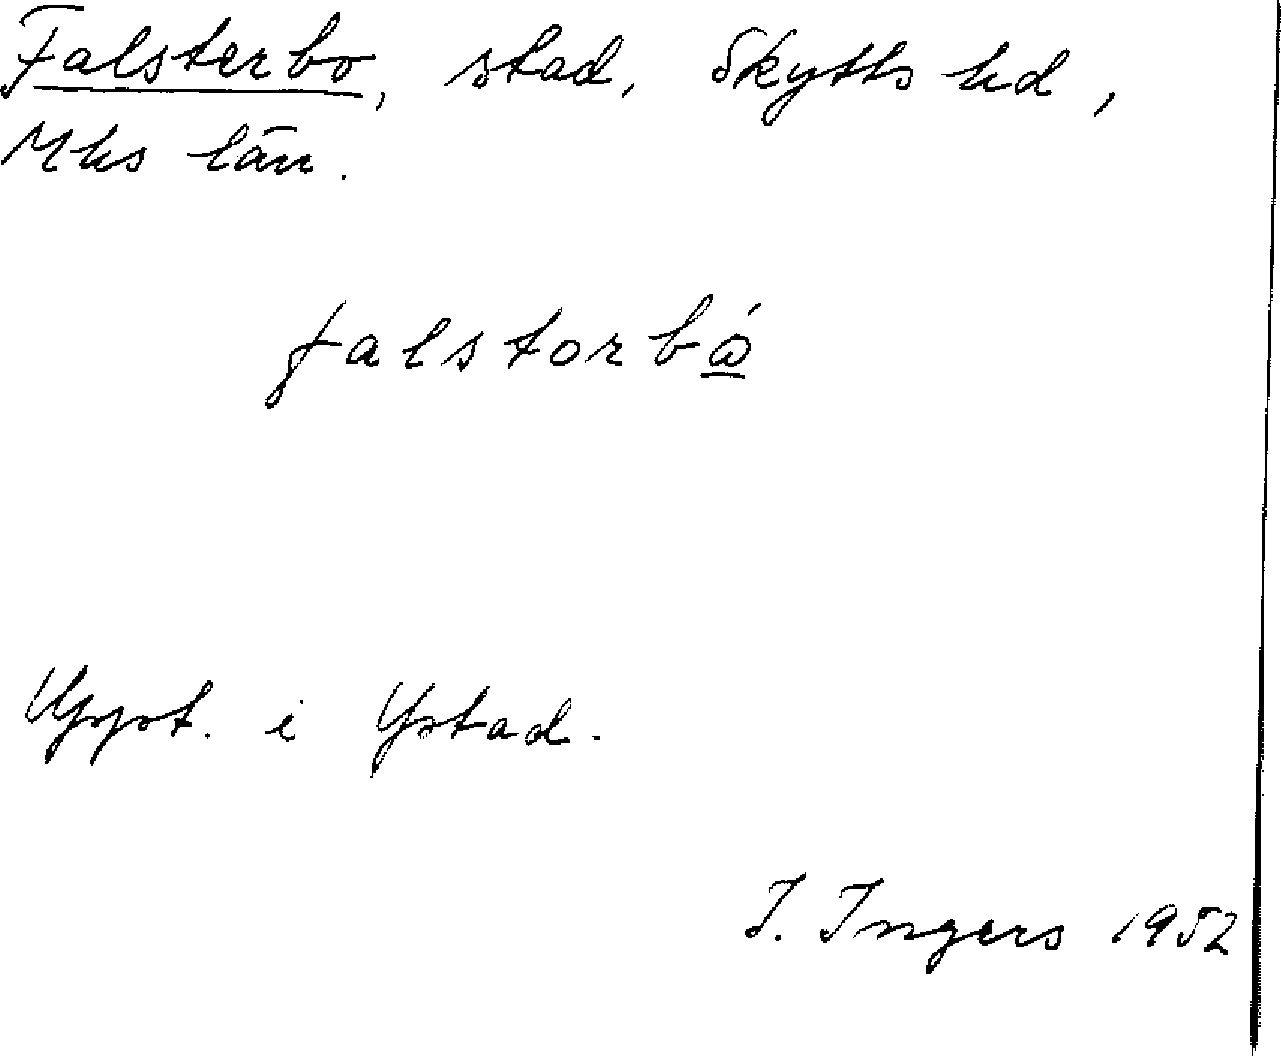 Falsterbo, stad, Skytts hd,
Mhs län.
falstorbó
Uppt. i Ystad.
I. Ingers 1952